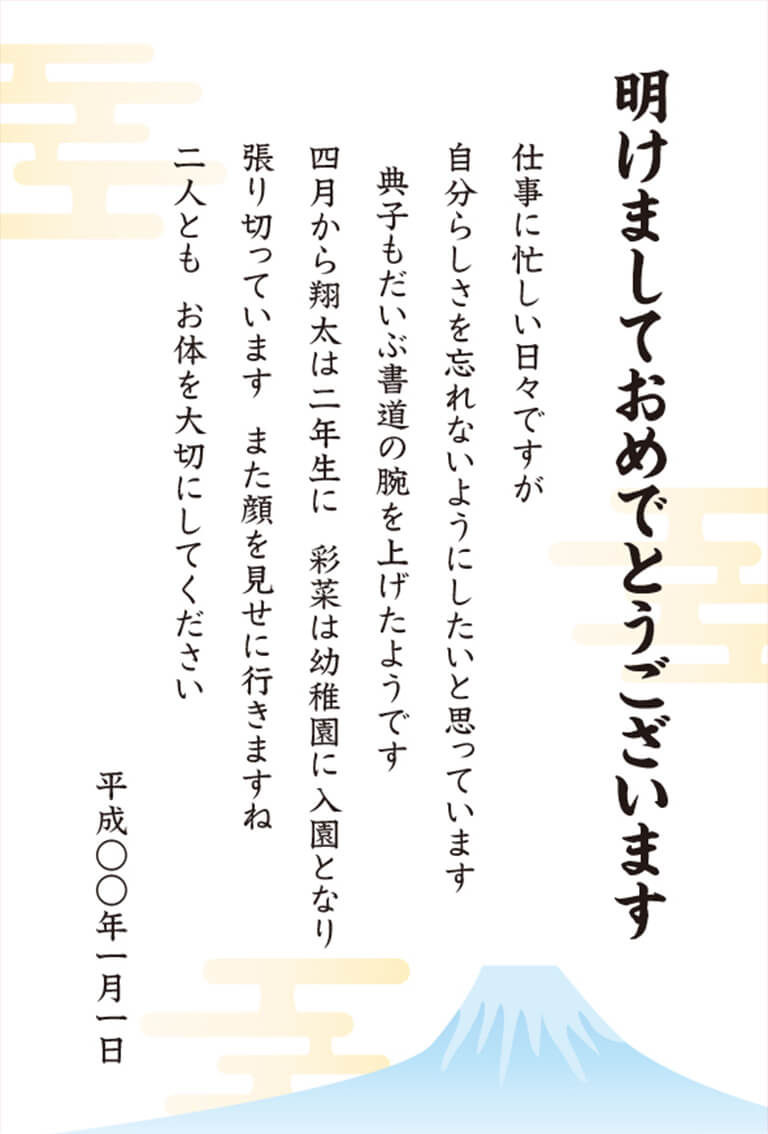 明けましておめでとうございます
仕事に忙しい日々ですが
自分らしさを忘れないようにしたいと思っています
典子もだいぶ書道の腕を上げたようです
四月から翔太は二年生に　彩菜は幼稚園に入園となり
張り切っています　また顔を見せに行きますね
二人とも　お体を大切にしてください
平成〇〇年一月一日